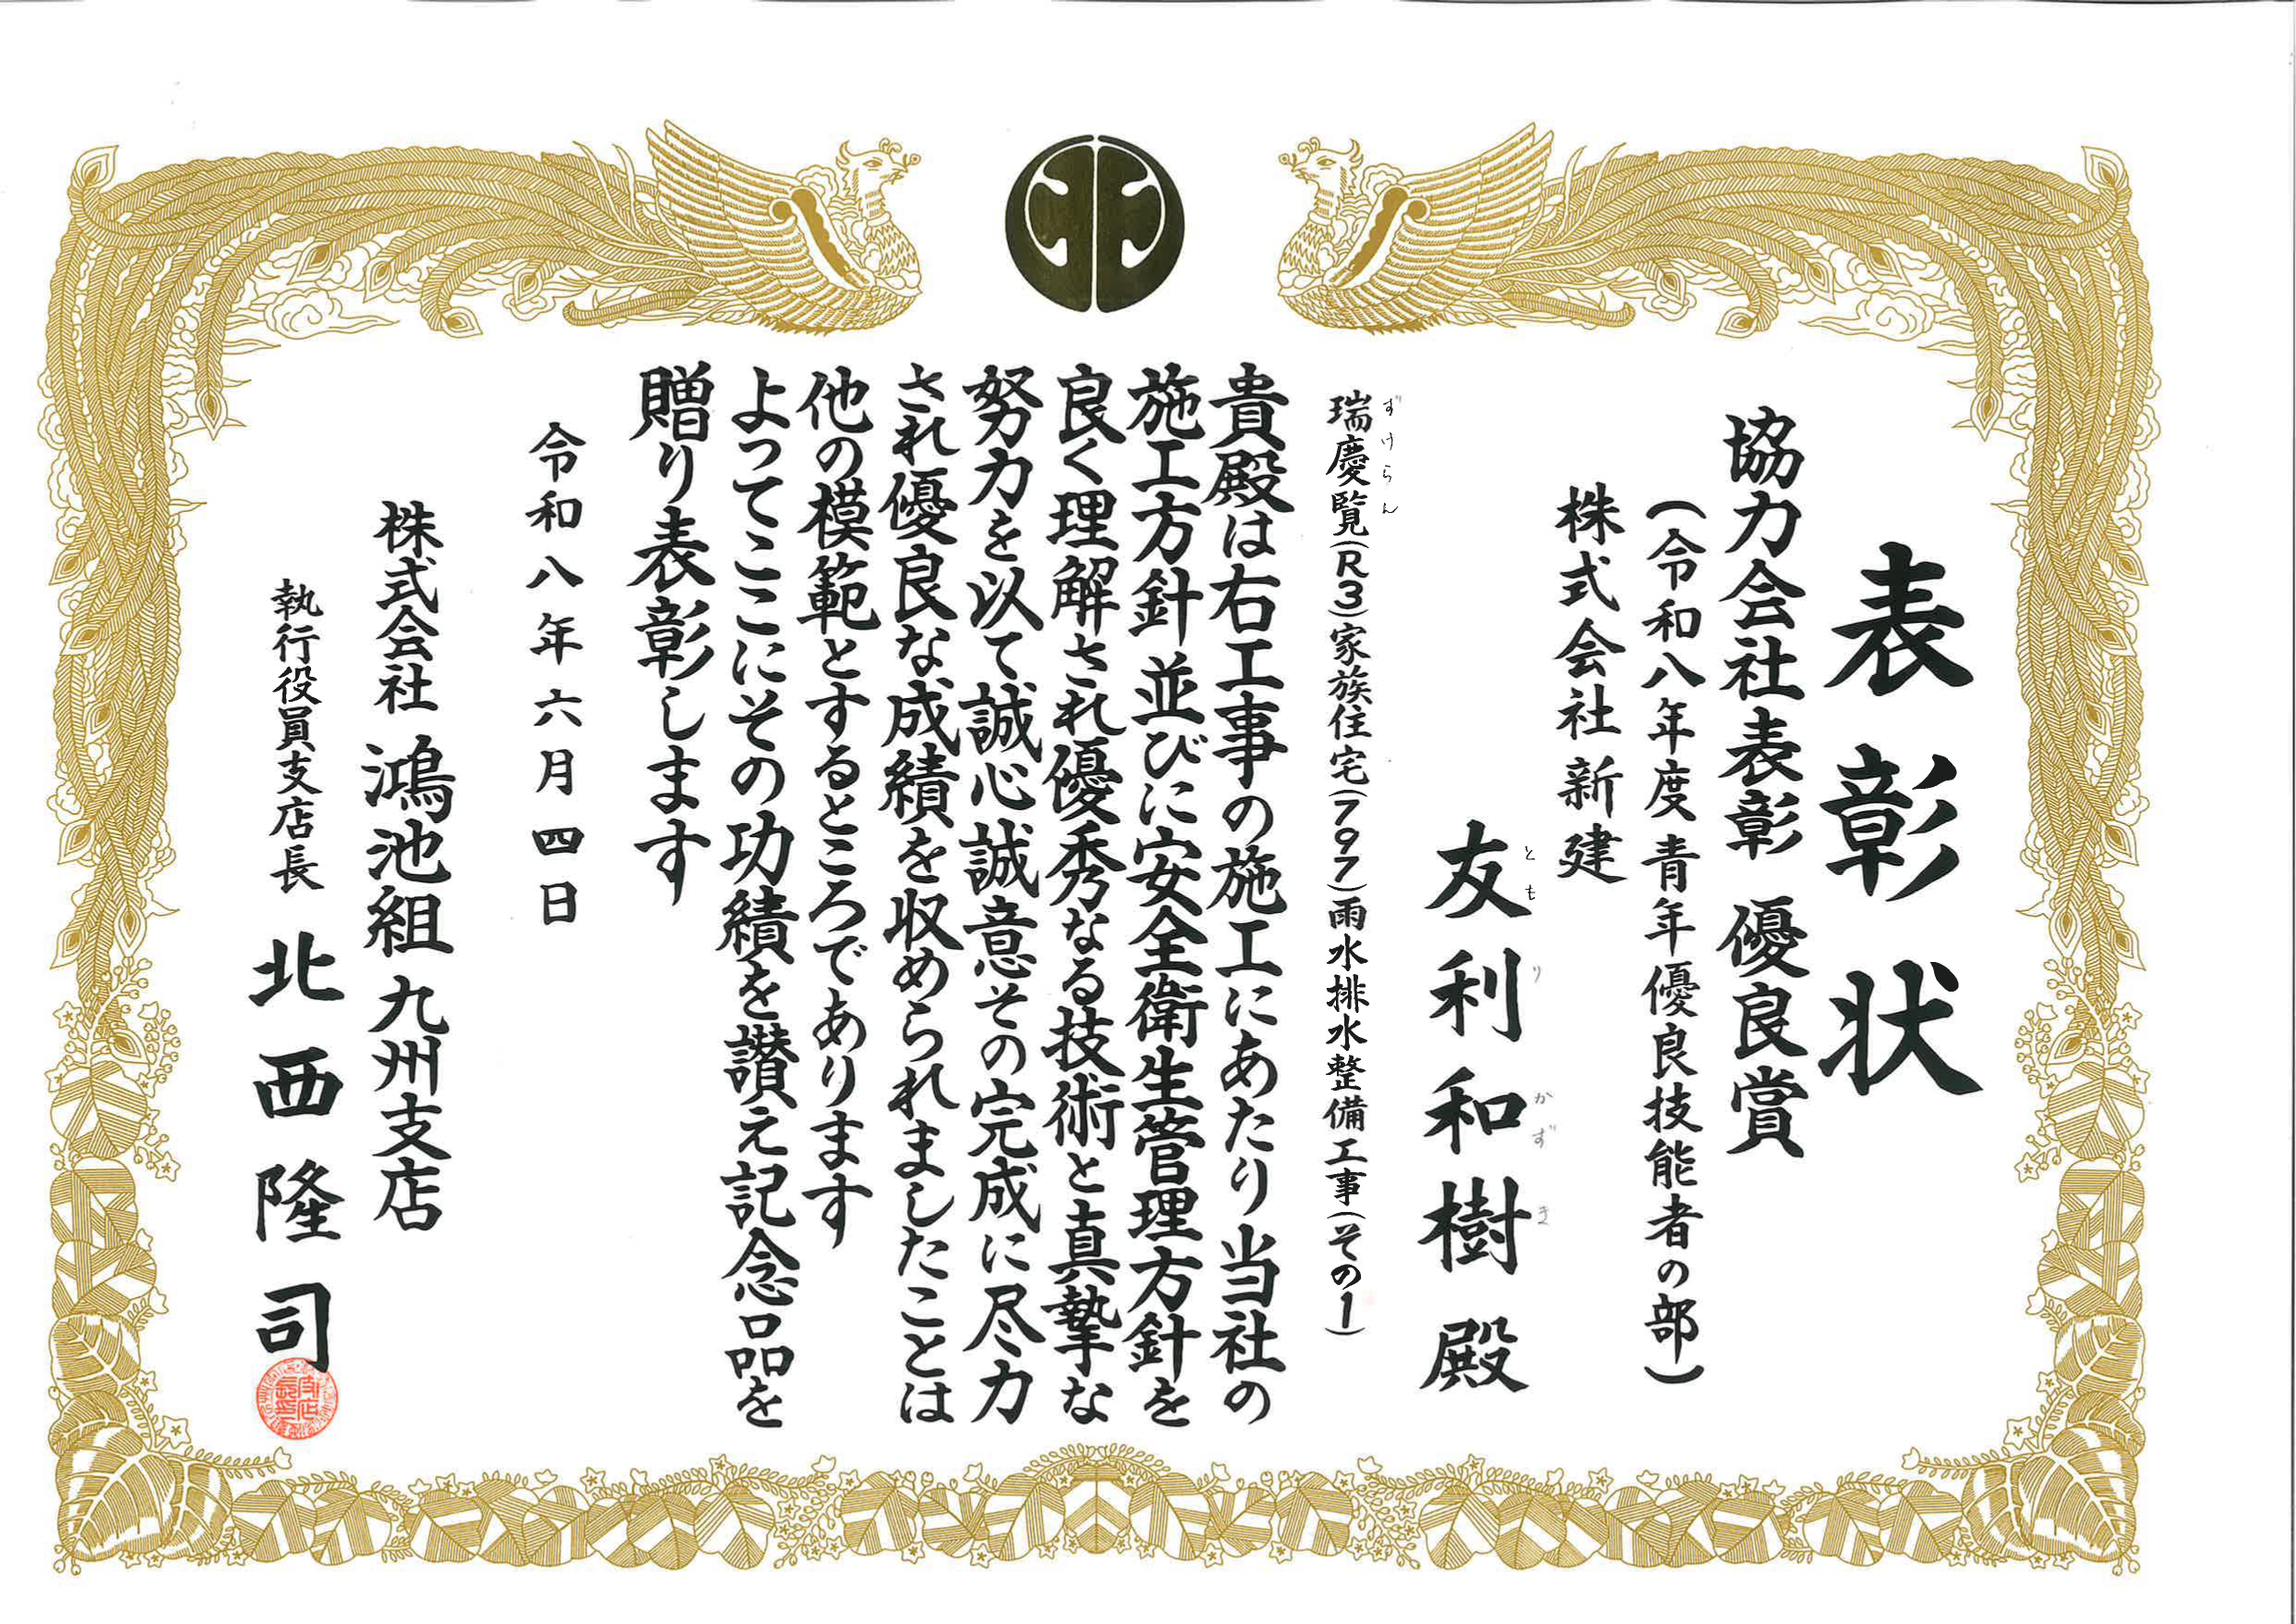 表彰状
協力会社表彰 優良賞
(令和八年度青年優良技能者の部)
株式会社 新建
友利和樹 殿
ともり かずき
瑞慶覧(R3)家族住宅(797)雨水排水整備工事(その1)
ずけらん
貴殿は右工事の施工にあたり当社の
施工方針並びに安全衛生管理方針を
良く理解され優秀なる技術と真摯な
努力を以て誠心誠意その完成に尽力
され優良な成績を収められましたことは
他の模範とするところであります
よってここにその功績を讃え記念品を
贈り表彰します
令和八年六月四日
株式会社 鴻池組 九州支店
執行役員支店長 北西隆司